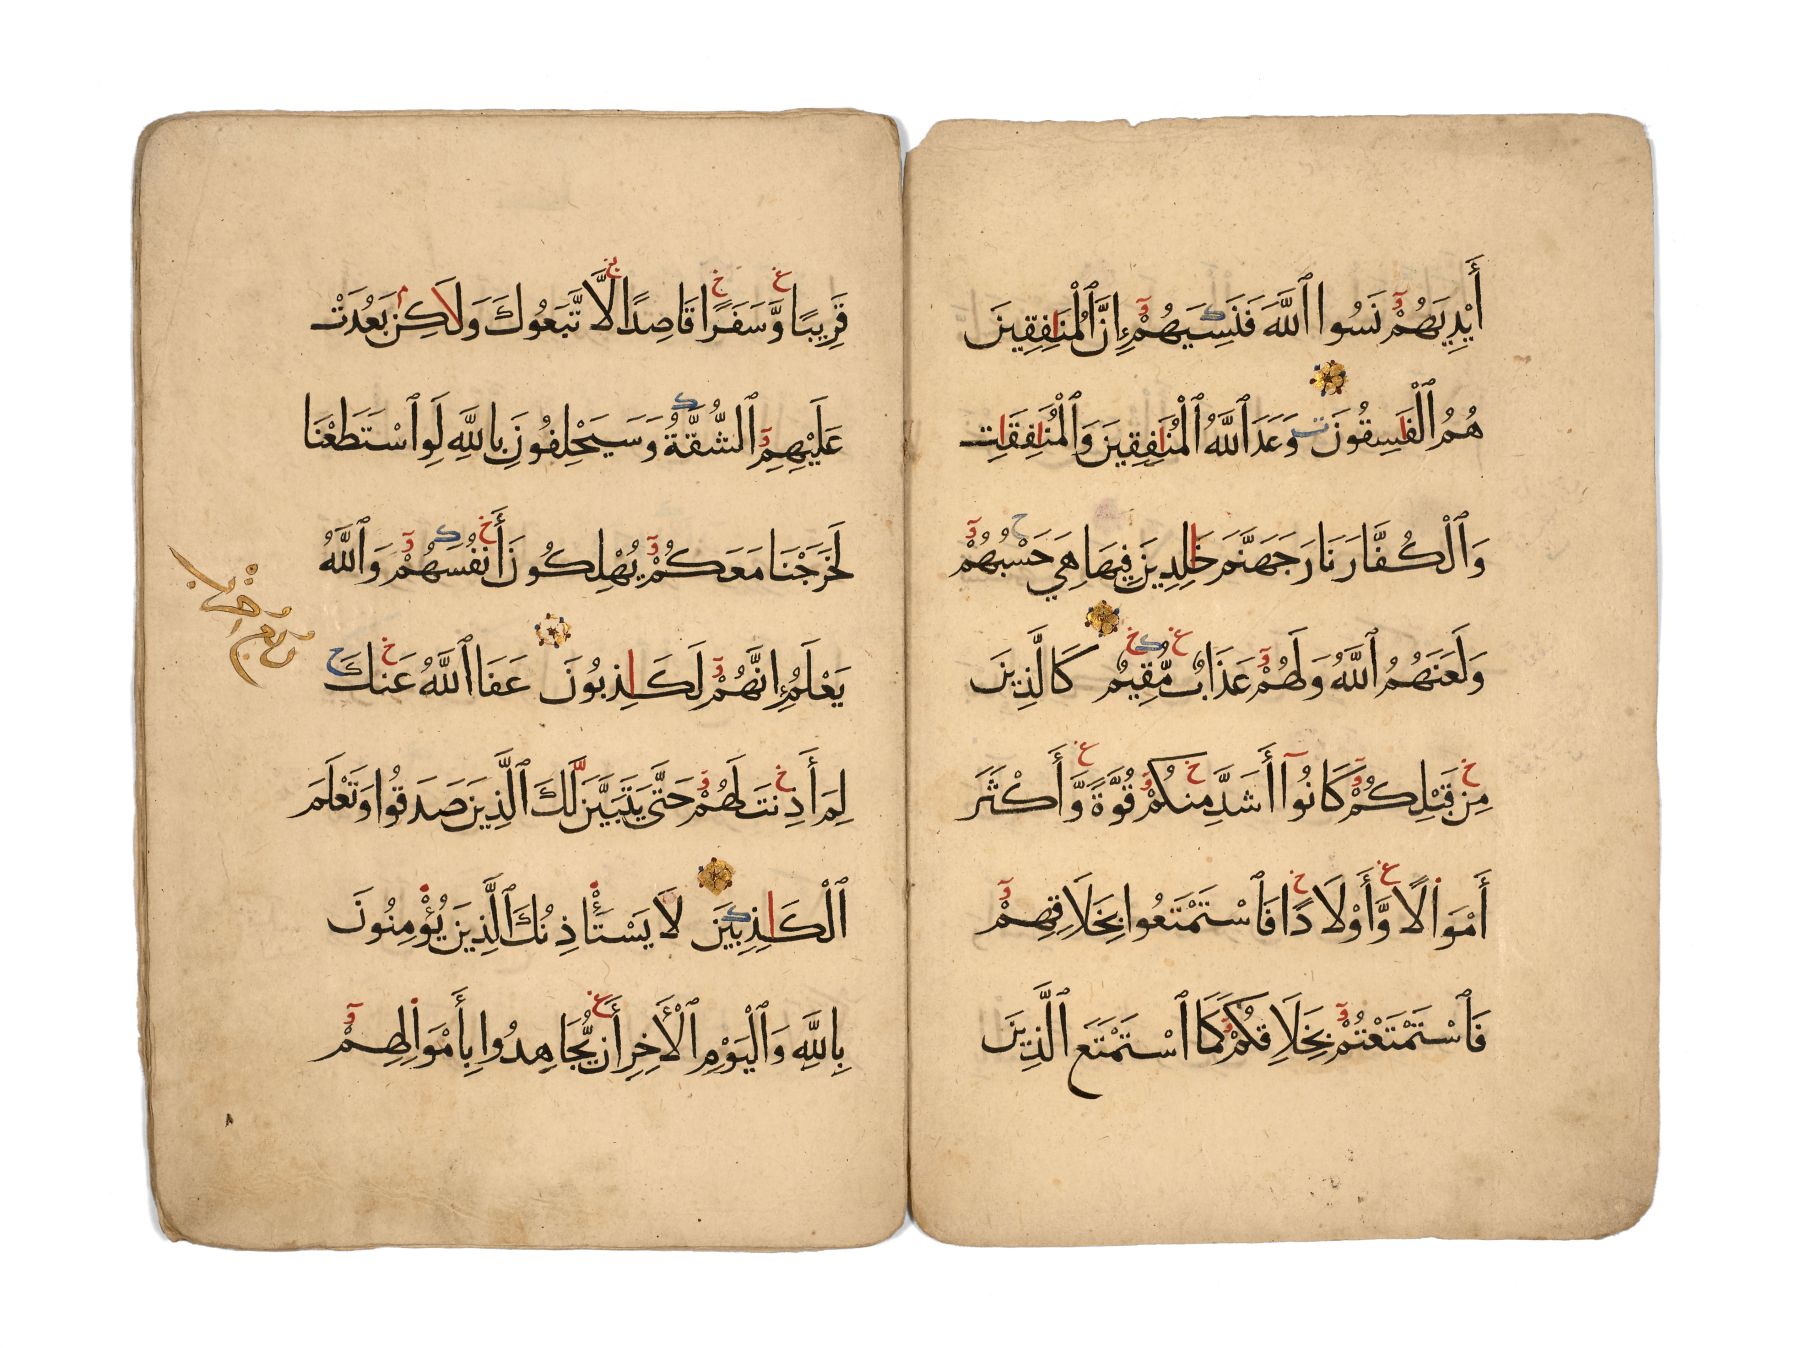 أَيْدِيَهُمْ نَسُوا ٱللَّهَ فَنَسِيَهُمْ إِنَّ ٱلْمُنَافِقِينَ
هُمُ ٱلْفَاسِقُونَ وَعَدَ ٱللَّهُ ٱلْمُنَافِقِينَ وَٱلْمُنَافِقَاتِ
وَٱلْكُفَّارَ نَارَ جَهَنَّمَ خَالِدِينَ فِيهَا هِيَ حَسْبُهُمْ
وَلَعَنَهُمُ ٱللَّهُ وَلَهُمْ عَذَابٌ مُّقِيمٌ كَالَّذِينَ
مِن قَبْلِكُمْ كَانُوآ أَشَدَّ مِنكُمْ قُوَّةً وَّأَكْثَرَ
أَمْوَالًا وَّأَوْلَادًا فَٱسْتَمْتَعُوا بِخَلَاقِهِمْ
فَٱسْتَمْتَعْتُمْ بِخَلَاقِكُمْ كَمَا ٱسْتَمْتَعَ ٱلَّذِينَ
قَرِيبًا وَّسَفَرًا قَاصِدًا لَّاتَّبَعُوكَ وَلَاكِن بَعُدَتْ
عَلَيْهِمُ ٱلشُّقَّةُ وَسَيَحْلِفُونَ بِاللَّهِ لَوِ ٱسْتَطَعْنَا
لَخَرَجْنَا مَعَكُمْ يُهْلِكُونَ أَنفُسَهُمْ وَٱللَّهُ
يَعْلَمُ إِنَّهُمْ لَكَاذِبُونَ عَفَا ٱللَّهُ عَنكَ
لِمَ أَذِنتَ لَهُمْ حَتَّى يَتَبَيَّنَ لَكَ ٱلَّذِينَ صَدَقُوا وَتَعْلَمَ
ٱلْكَاذِبِينَ لَا يَسْتَأْذِنُكَ ٱلَّذِينَ يُؤْمِنُونَ
بِاللَّهِ وَٱلْيَوْمِ ٱلْأَخِرِ أَن يُّجَاهِدُوا بِأَمْوَالِهِمْ